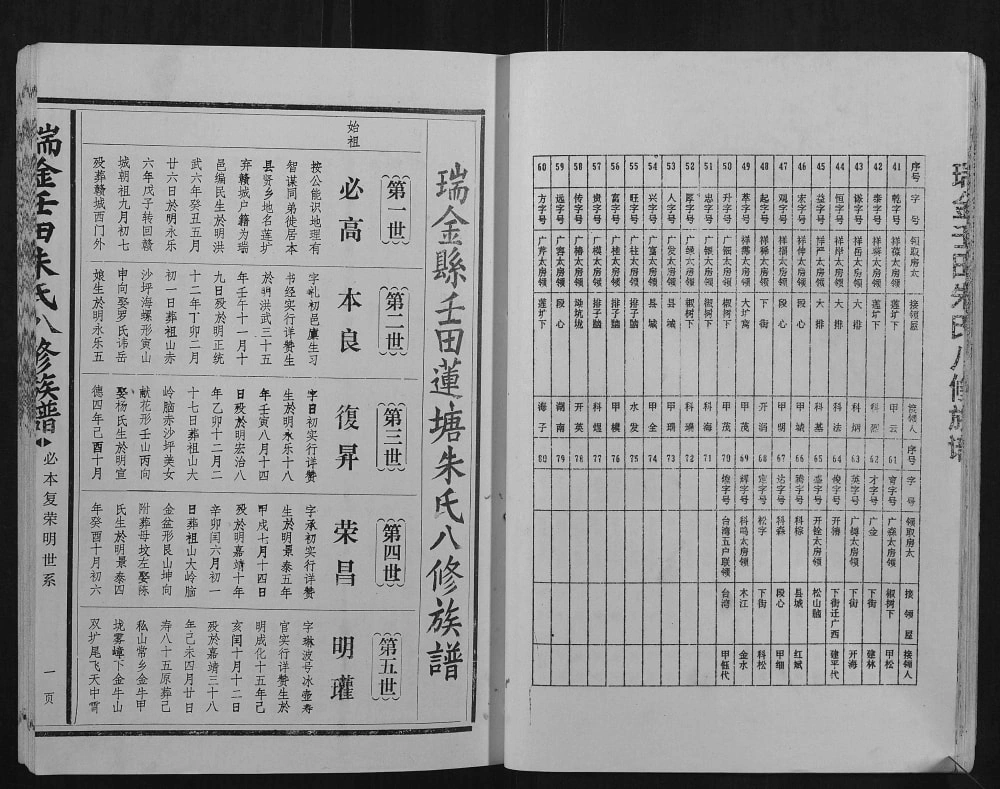 瑞金壬田朱氏八修族谱
序号 字号 领取房太 接领屋 接领人
41 乾字号 祥葆太房领 莲圹下 甲云
42 泰字号 祥蕣太房领 椒树下
43 谦字号 祥岳太房领 大排 科炳
44 恒字号 祥椿太房领 大排 科法
45 益字号 祥严太房领 大排 科基
46 宏字号 祥伸太房领 段心 甲城
47 观字号 祥福太房领 段心 甲明
48 起字号 祥稀太房领 下街 开滔
49 萃字号 祥荡太房领 大圹窝 甲茂
50 升字号 广银太房领 椒树下 甲茂
51 忠字号 广银太房领 椒树下 科海
52 厚字号 广绿太房领 椒树下 科瑞
53 人字号 广发太房领 县城 科瑞
54 兴字号 广富太房领 县城 甲金
55 旺字号 广柱太房领 排子脑 水发
56 富字号 广桂太房领 排子脑 甲横
57 贵字号 广模太房领 排子脑 科煜
58 传字号 广榜太房领 坳坑垅 开英
59 远字号 广蓉太房领 段心 湖南
60 方字号 广芹太房领 莲圹下 海子
序号 字号 领取房太 接领屋 接领人
61 育字号 广淼太房领 椒树下 甲松
62 才字号 广金 下街 建林
63 英字号 广缚太房领 下街 开海
64 俊字号 开漪 下街迁广西 建平代
65 盛字号 开铨太房领 松山脑
66 腾字号 科棕 县城 红斌
67 达字号 科淼 段心 甲细
68 宏字号 松字 下街 科松
69 辉字号 科鸣太房领 木江 金水
70 煌字号 台湾五户联领 台湾 甲钰代
71
72
73
74
75
76
77
78
79
80
瑞金縣壬田蓮塘朱氏八修族譜
始祖
第一世
必高
按公能识地理有
智谋同弟徙居本
县贤乡地名莲圹
弃赣城户籍为瑞
邑编民生於明洪
武六年癸丑五月
廿六日於明永乐
六年戊子转回赣
城朝祖九月初七
殁葬赣城西门外
第二世
本良
字礼初邑廪生习
书经实行详赞生
於明洪武三十五
年壬午十一月十
九日殁於明正统
十二年丁卯二月
初一日葬祖山赤
沙坪海螺形寅山
申向娶罗氏讳岳
娘生於明永乐五
第三世
復昇
字日初实行详赞
生於明永乐十八
年壬寅八月十四
日殁於明宏治八
年乙卯十二月二
十七日葬祖山大
岭脑赤沙坪美女
献花形壬山丙向
娶杨氏生於明宣
德四年己酉十月
第四世
荣昌
字承初实行详赞
生於明景泰五年
甲戌七月十四日
殁於明嘉靖十年
辛卯闰六月初一
日葬祖山大岭脑
金盆形艮山坤向
附葬母坟左娶陈
氏生於明景泰四
年癸酉十月初六
第五世
明瓘
字琳波号冰壶寿
官实行详赞生於
明成化十五年己
亥闰十月十二日
殁於嘉靖三十八
年己未四月廿日
寿八十五原葬己
私山常乡金牛甲
垅雾嶂下金牛山
双圹尾飞天中霄
瑞金壬田朱氏八修族譜
必本复荣明世系
一页